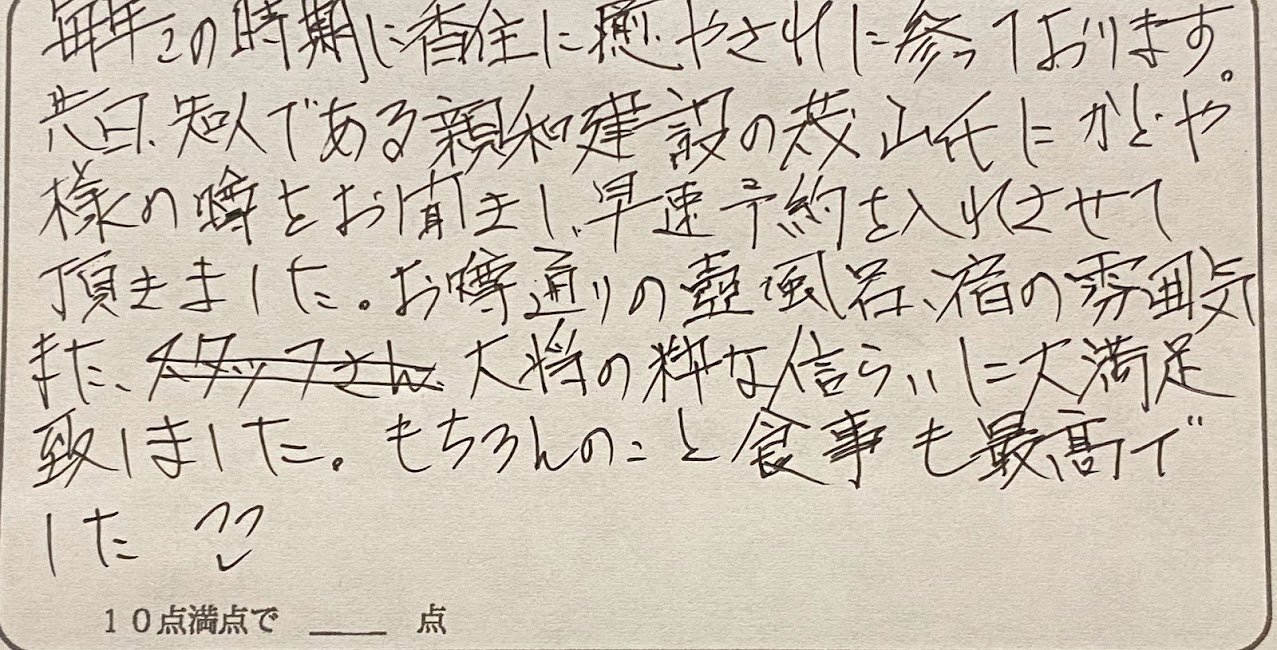 毎年この時期に香住に癒やされに参っております。
先日、知人である親和建設の茂山氏にかどや
様の噂をお聞きし、早速予約を入れさせて
頂きました。お噂通りの壺風呂、宿の雰囲気
また、スタッフさん、大将の粋な計らいに大満足
致しました。もちろんのこと食事も最高で
した
10点満点で ____ 点